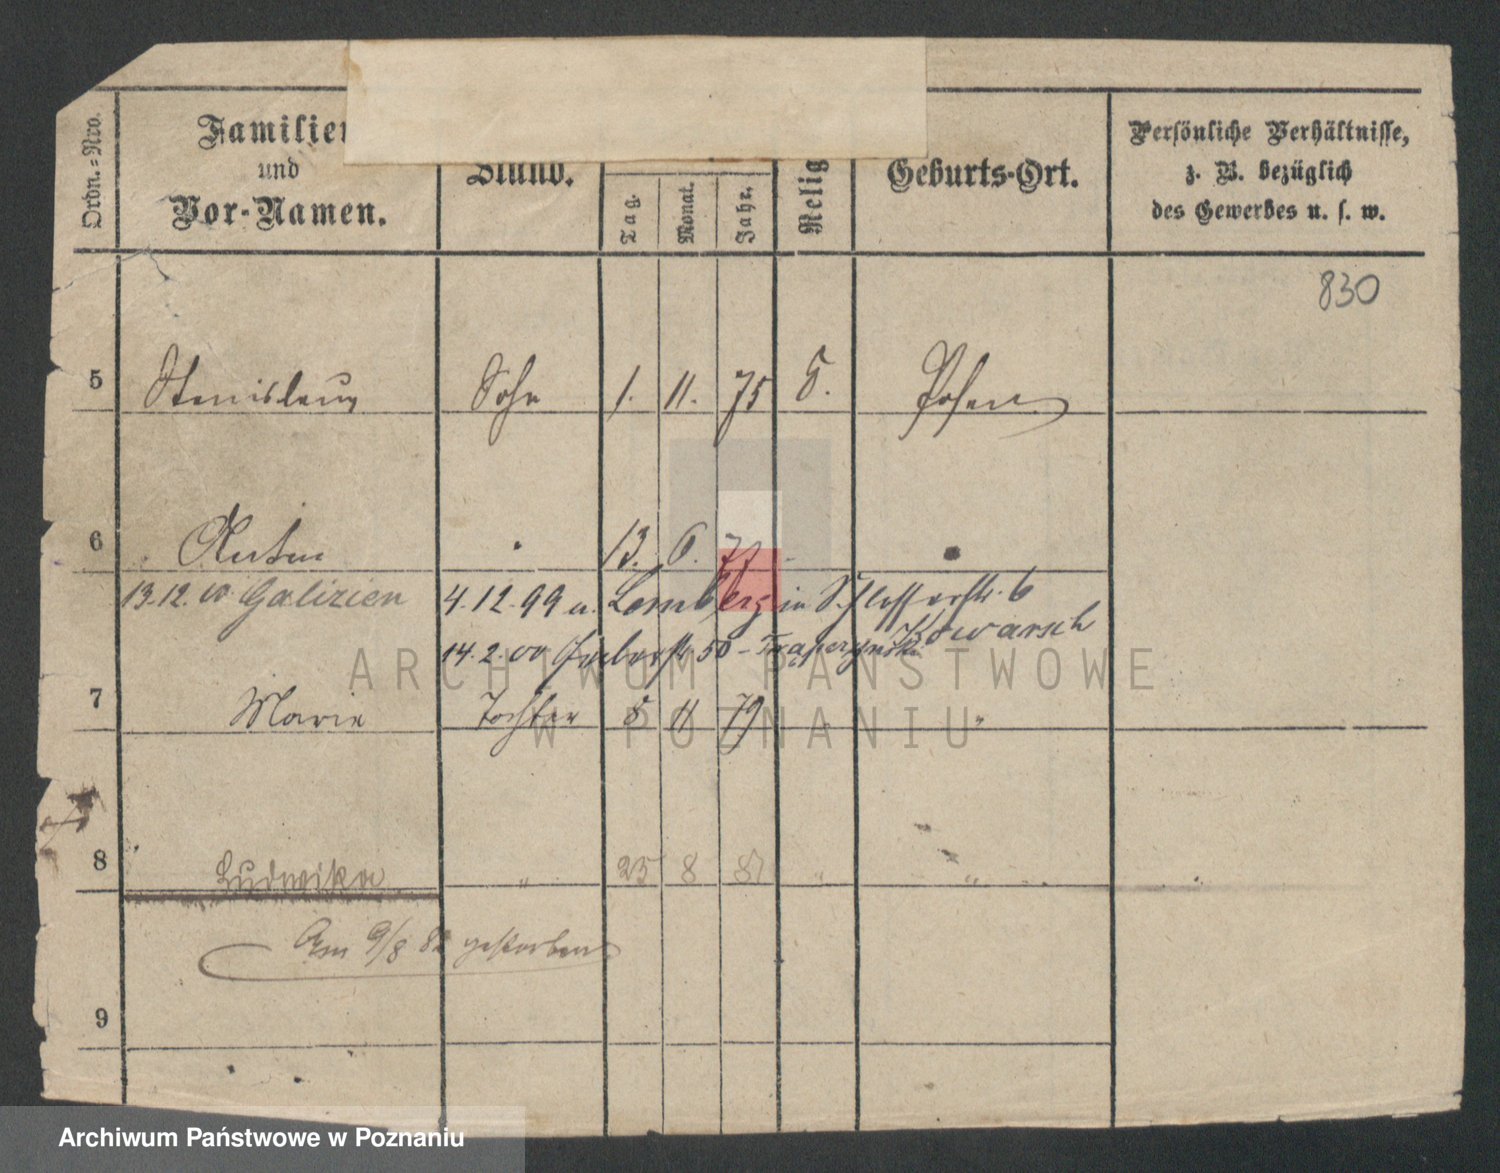 Ordn.=Nro.
Familien
und
Vor-Namen.
Stand.
Tag.
Monat.
Jahr.
Relig
Geburts-Ort.
Persönliche Verhältnisse,
z. B. bezüglich
des Gewerbes u. s. w.
830
5 Stanislaus Sohn 1. 11. 75 Posen
6 Anton " 13. 6. 77 "
13.12.00 Galizien 4.12.99 a. Lemberg in Schlosserstr. 6
Kowarsch
14.2.00 50 -
7 Marie Tochter 5 11 79 " "
8 Ludwika " 25 8 81 " "
Am 9/8 82 gestorben
9
ARCHIWUM PAŃSTWOWE
W POZNANIU
Archiwum Państwowe w Poznaniu